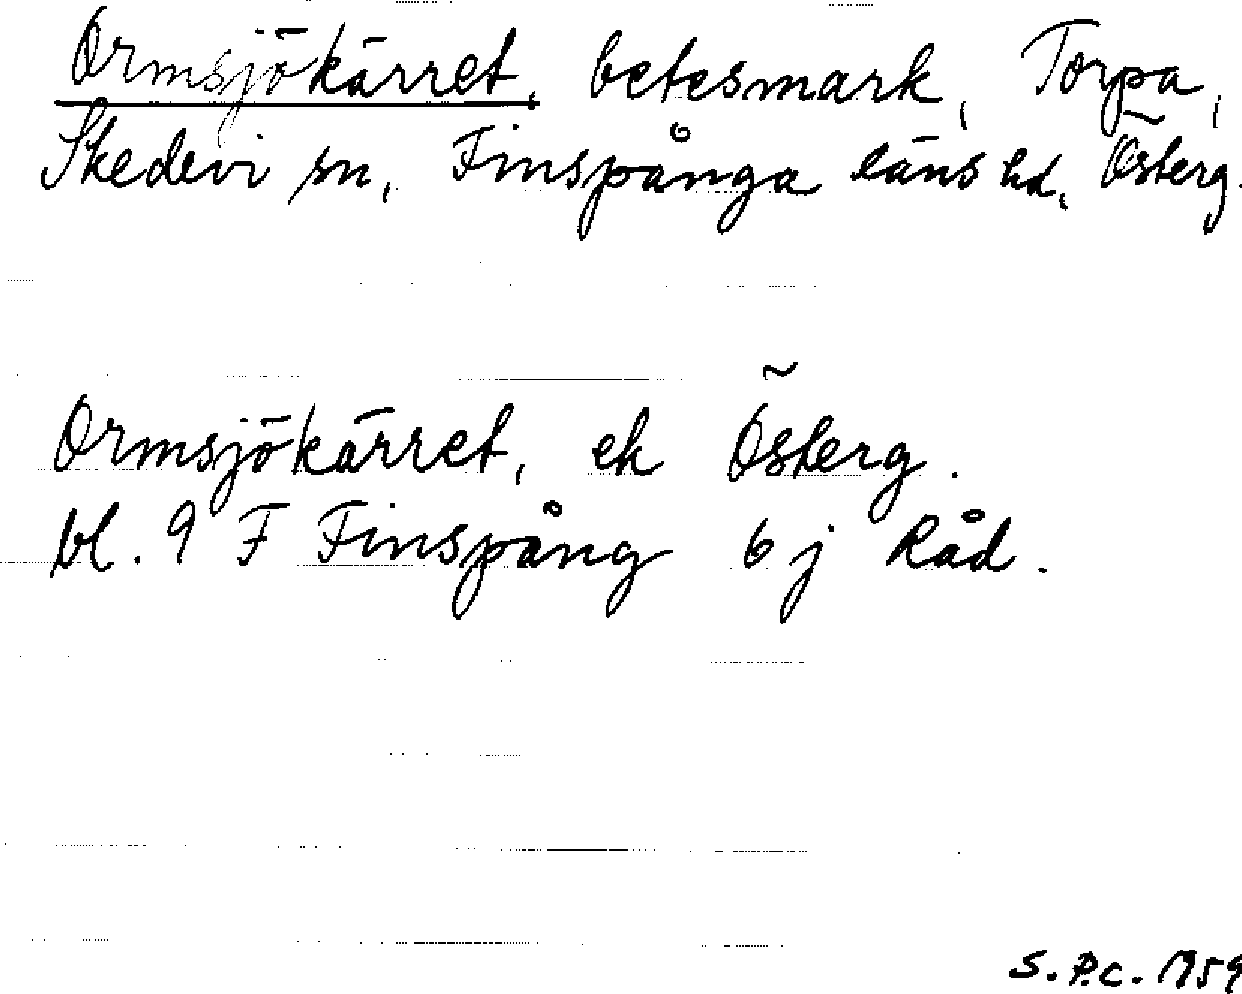 Ormsjökärret, betesmark, Torpa,
Skedevi sn, Finspånga läns hd, Österg.
Ormsjökärret, ek Österg.
bl. 9 F Finspång 6 j Råd.
S.P.C. 1959